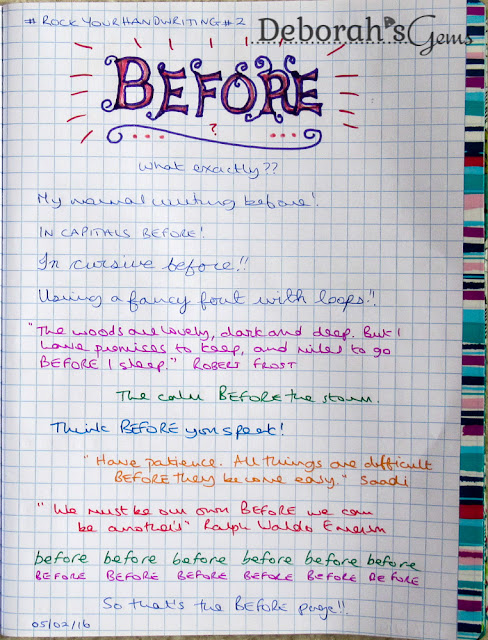 #ROCKYOURHANDWRITING#2
Deborah's Gems
BEFORE
?
what exactly??
My normal writing before!
IN CAPITALS BEFORE!
In cursive before!!
Using a fancy font with loops!!
"The woods are lovely, dark and deep. But I
have promises to keep, and miles to go
BEFORE I sleep." ROBERT FROST
The calm BEFORE the storm.
Think BEFORE you speak!
"Have patience. All things are difficult
BEFORE they become easy." Saadi
"We must be our own BEFORE we can
be another's" Ralph Waldo Emerson
before before before before before before
BEFORE BEFORE BEFORE BEFORE BEFORE BEFORE
So that's the BEFORE page!!
05/02/16